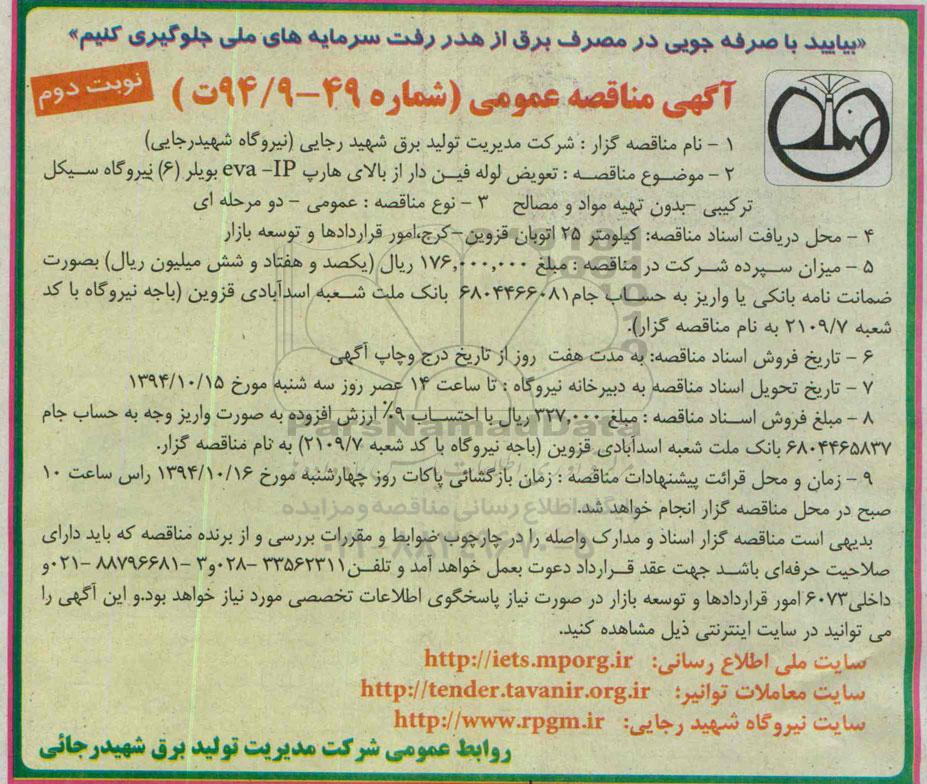 «بیایید با صرفه جویی در مصرف برق از هدر رفت سرمایه های ملی جلوگیری کنیم»
نوبت دوم
آگهی مناقصه عمومی (شماره ۴۹-۹۴/۹ت )
۱ - نام مناقصه گزار : شرکت مدیریت تولید برق شهید رجایی (نیروگاه شهیدرجایی)
۲ - موضـوع مناقصـه : تعویض لوله فیـن دار از بالای هارپ eva -IP بویلر (۶) نیروگاه سـیکل
ترکیبی -بدون تهیه مواد و مصالح ۳ - نوع مناقصه : عمومی - دو مرحله ای
۴ - محل دریافت اسناد مناقصه: کیلومتر ۲۵ اتوبان قزوین-کرج،امور قراردادها و توسعه بازار
۵ - میزان سـپرده شـرکت در مناقصه : مبلغ ۱۷۶,۰۰۰,۰۰۰ ریال (یکصد و هفتاد و شش میلیون ریال) بصورت
ضمانت نامه بانکی یا واریز به حسـاب جام۶۸۰۴۴۶۶۰۸۱ بانک ملت شـعبه اسدآبادی قزوین (باجه نیروگاه با کد
شعبه ۲۱۰۹/۷ به نام مناقصه گزار).
۶ - تاریخ فروش اسناد مناقصه: به مدت هفت روز از تاریخ درج وچاپ آگهی
۷ - تاریخ تحویل اسناد مناقصه به دبیرخانه نیروگاه : تا ساعت ۱۴ عصر روز سه شنبه مورخ ۱۳۹۴/۱۰/۱۵
۸ - مبلغ فروش اسـناد مناقصه : مبلغ ۳۲۷,۰۰۰ ریال با احتسـاب ۹٪ ارزش افزوده به صورت واریز وجه به حساب جام
۶۸۰۴۴۶۵۸۳۷ بانک ملت شعبه اسدآبادی قزوین (باجه نیروگاه با کد شعبه ۲۱۰۹/۷) به نام مناقصه گزار.
۹ - زمان و محل قرائت پیشنهادات مناقصه : زمان بازگشائی پاکات روز چهارشنبه مورخ ۱۳۹۴/۱۰/۱۶ راس ساعت ۱۰
صبح در محل مناقصه گزار انجام خواهد شد.
بدیهی است مناقصه گزار اسناد و مدارک واصله را در چارچوب ضوابط و مقررات بررسی و از برنده مناقصه که باید دارای
صلاحیت حرفه‌ای باشـد جهت عقد قـرارداد دعوت بعمل خواهد آمد و تلفـن۳۳۵۶۲۳۱۱ -۰۲۸و۳ -۸۸۷۹۶۶۸۱ -۰۲۱و
داخلی۶۰۷۳ امور قراردادها و توسعه بازار در صورت نیاز پاسخگوی اطلاعات تخصصی مورد نیاز خواهد بود.و این آگهی را
می توانید در سایت اینترنتی ذیل مشاهده کنید.
سایت ملی اطلاع رسانی: http://iets.mporg.ir
سایت معاملات توانیر: http://tender.tavanir.org.ir
سایت نیروگاه شهید رجایی: http://www.rpgm.ir
روابط عمومی شرکت مدیریت تولید برق شهیدرجائی
ParsNamadData
پایگاه اطلاع رسانی مناقصه و مزایده